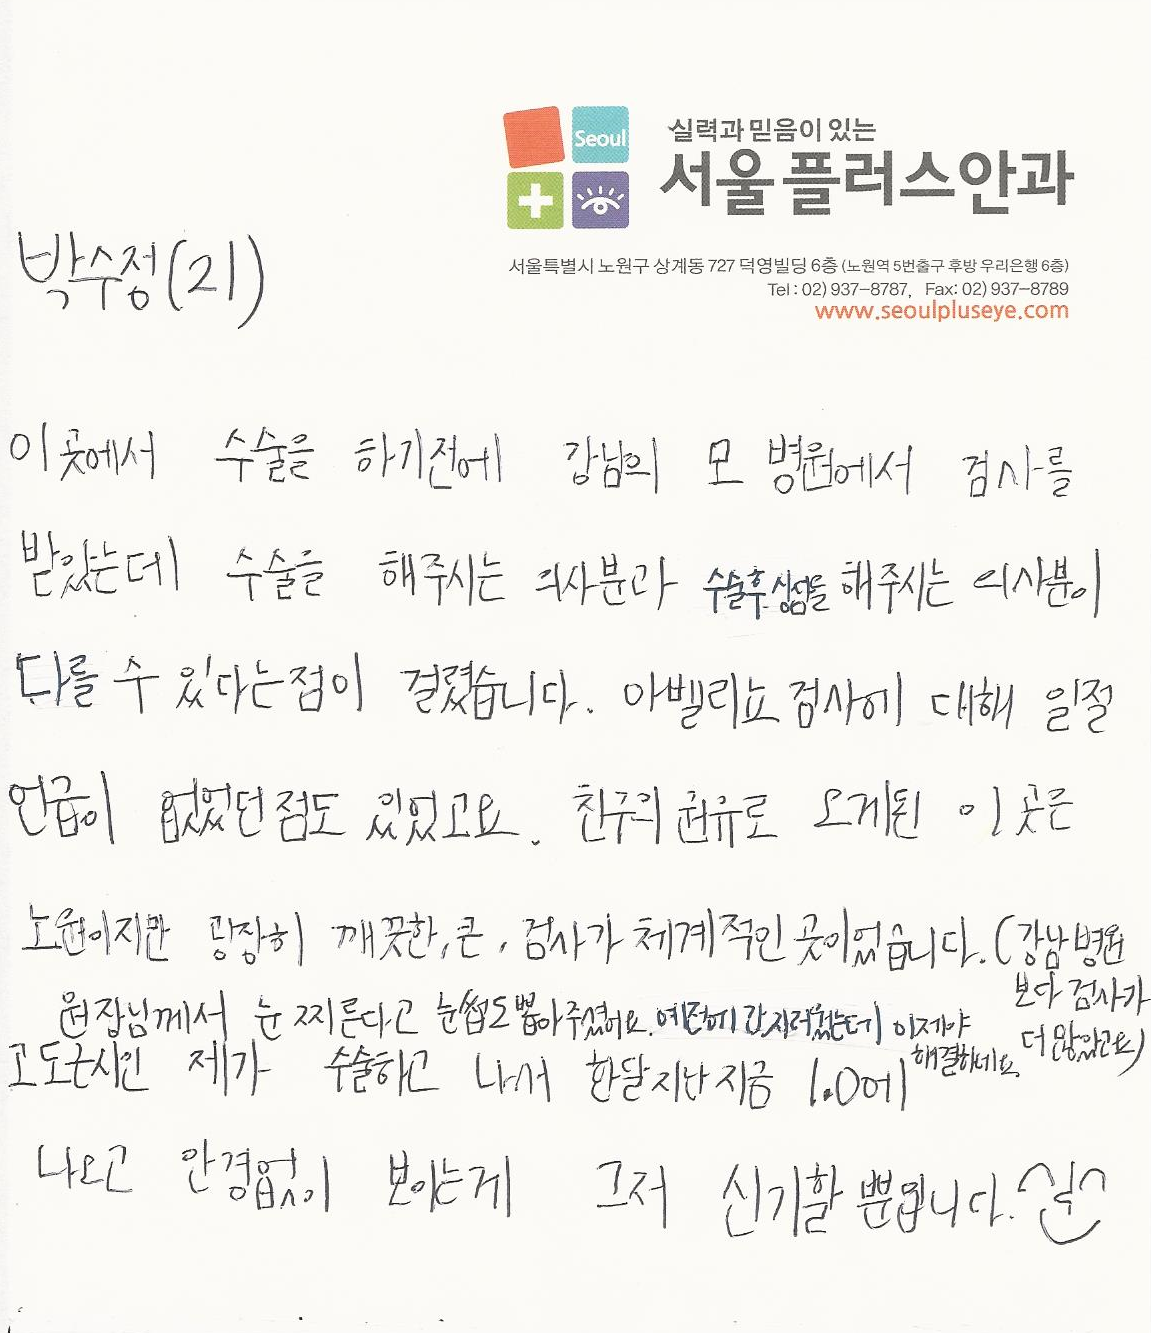 Seoul
실력과 믿음이 있는
서울플러스안과
서울특별시 노원구 상계동 727 덕영빌딩 6층 (노원역 5번출구 후방 우리은행 6층)
Tel : 02) 937-8787, Fax: 02) 937-8789
www.seoulpluseye.com
박수정(21)
이곳에서 수술을 하기전에 강남의 모 병원에서 검사를
받았는데 수술을 해주시는 의사분과 수술후 상담을 해주시는 의사분이
다를 수 있다는점이 걸렸습니다. 아벨리뇨 검사에 대해 일절
언급이 없었던점도 있었고요. 친구의 권유로 오게된 이곳은
노원이지만 굉장히 깨끗한, 큰, 검사가 체계적인 곳이었습니다. (강남병원
보다 검사가
더 많았고요)
원장님께서 눈 찌른다고 눈썹도 뽑아주셨어요. 예전에 간지러웠는데 이제야
해결하네요.
고도근시인 제가 수술하고 나서 한달지난 지금 1.0에
나오고 안경없이 보이는게 그저 신기할 뿐입니다.